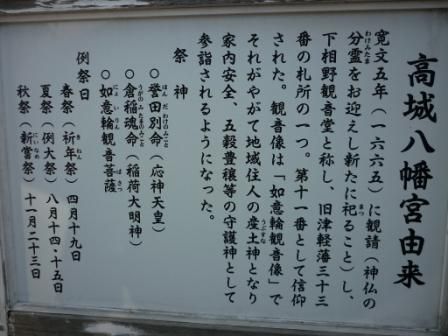 高城八幡宮由来
寛文五年(一六六五)に観請(神仏の
分霊をお迎えし新たに祀ること)し、
下相野観音堂と称し、旧津軽藩三十三
番の札所の一つ。第十一番として信仰
された。観音像は「如意輪観音像」で
それがやがて地域住人の産土神となり
家内安全、五穀豊穣等の守護神として
参詣されるようになった。
祭神
○誉田別命(応神天皇)
○倉稲魂命(稲荷大明神)
○如意輪観音菩薩
例祭日
春祭(祈年祭) 四月十九日
夏祭(例大祭) 八月十四・十五日
秋祭(新嘗祭) 十一月二十三日